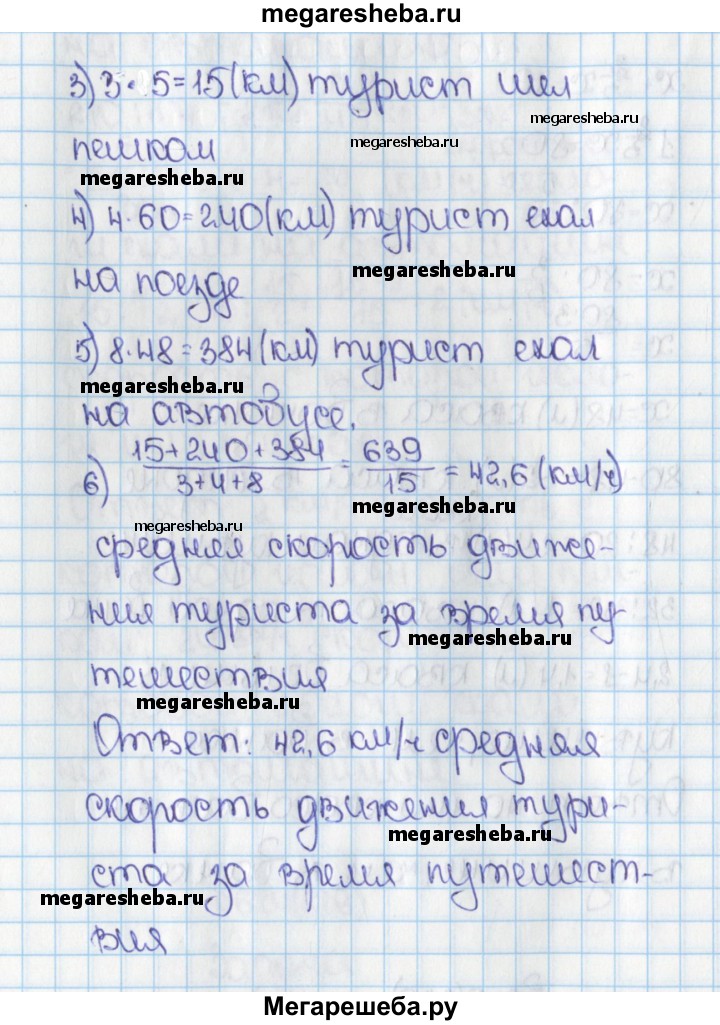 megaresheba.ru
3) 3 · 5 = 15 (км) турист шел
megaresheba.ru
пешком
megaresheba.ru
megaresheba.ru
4) 4 · 60 = 240 (км) турист ехал
на поезде
megaresheba.ru
5) 8 · 48 = 384 (км) турист ехал
megaresheba.ru
на автобусе.
6) 15+240+384 / 3+4+8 = 639 / 15 = 42,6 (км/ч)
megaresheba.ru
megaresheba.ru
средняя скорость движе-
ния туриста за время пу-
megaresheba.ru
тешествия
megaresheba.ru
Ответ: 42,6 км/ч средняя
скорость движения тури-
megaresheba.ru
ста за время путешест-
megaresheba.ru
вия
Мегарешеба.ру